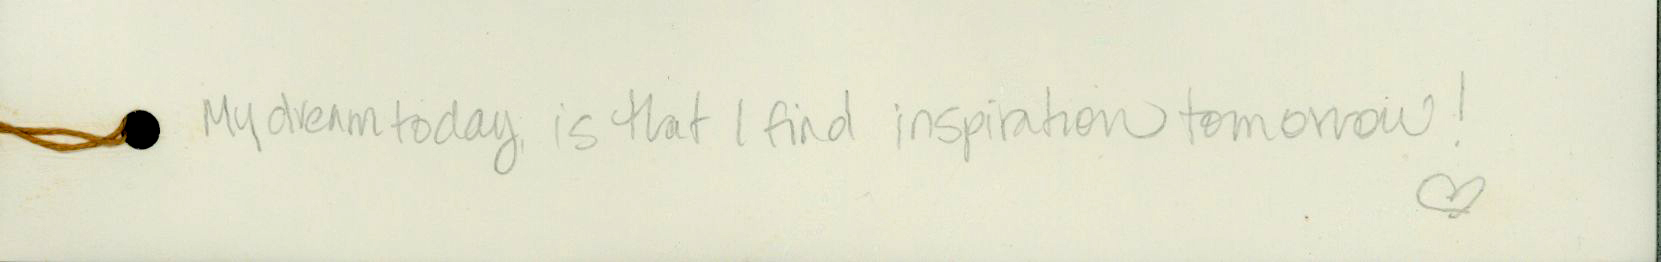 My dream today, is that I find inspiration tomorrow!